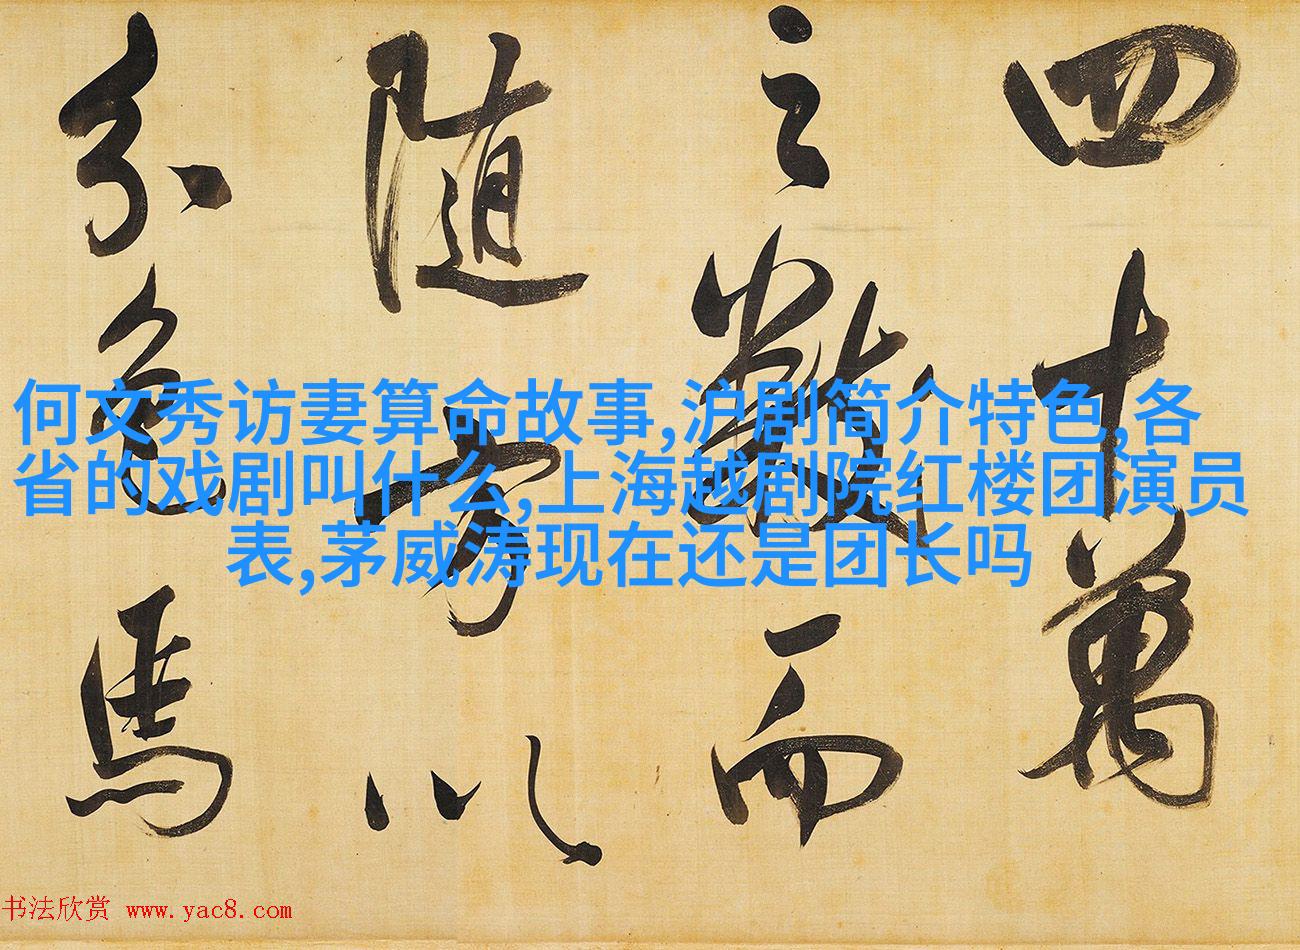 四十萬
之數而
随方以
分色馬
何文秀访妻算命故事,沪剧简介特色,各
省的戏剧叫什么,上海越剧院红楼团演员
表,茅威涛现在还是团长吗
书法欣赏 www.yac8.com